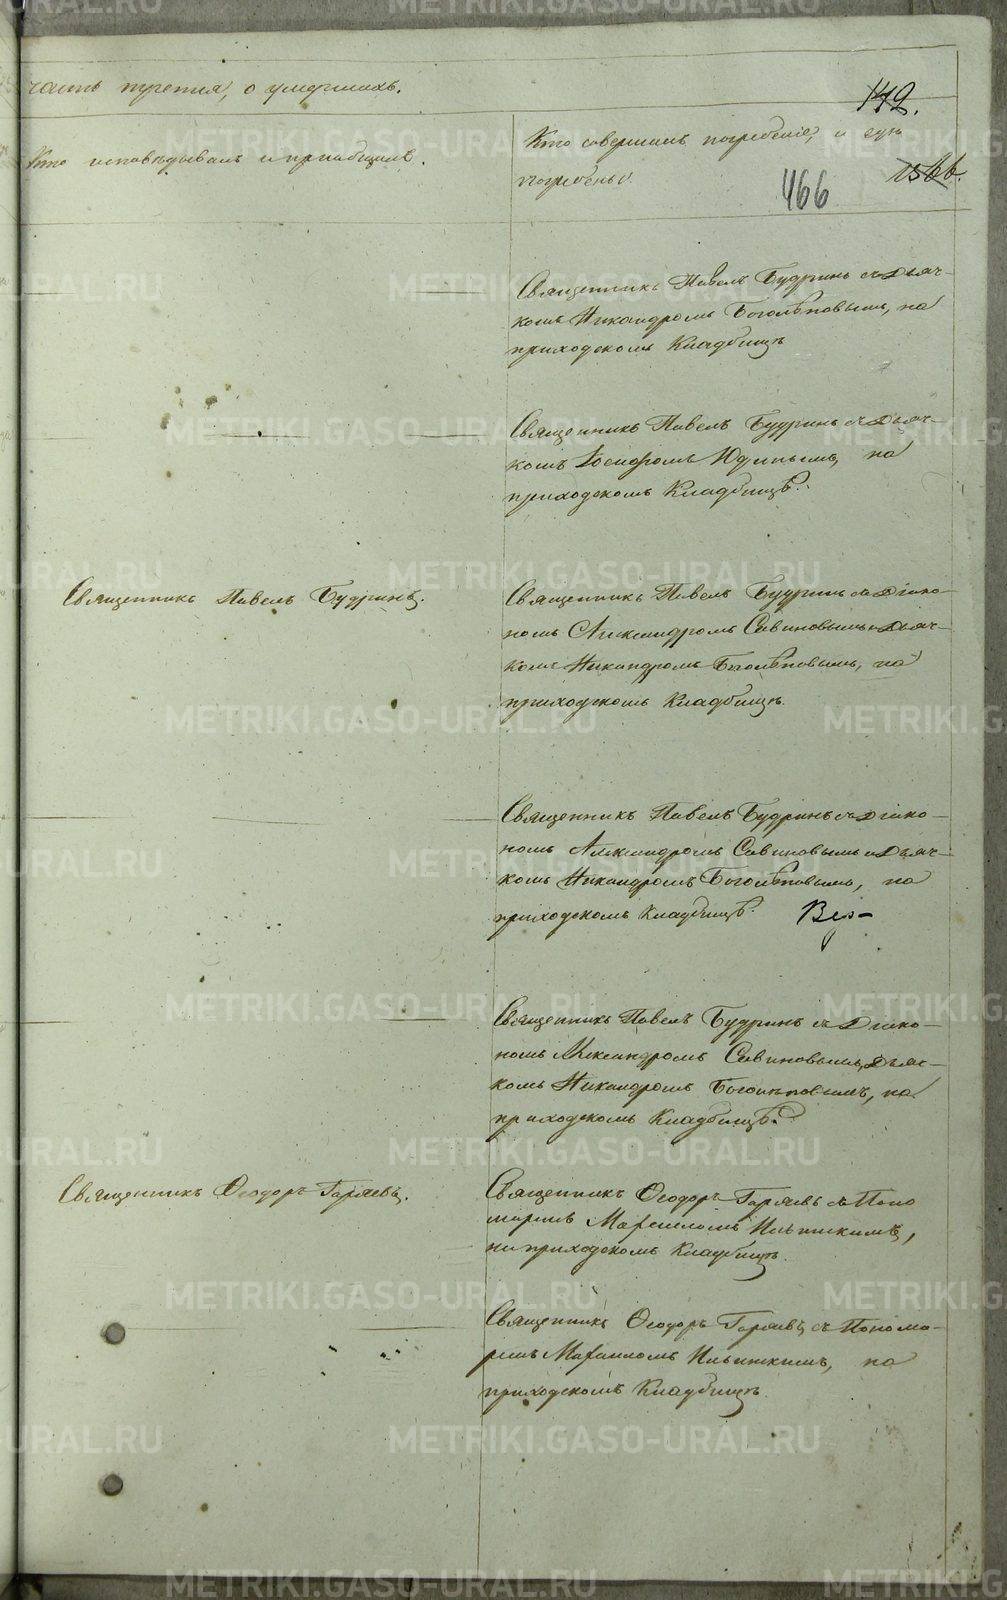 часть третія, о умершихъ.
142.
Кто исповѣдывалъ и пріобщалъ.
Кто совершалъ погребеніе, и гдѣ
погребены.
466
1566.
Священникъ Павелъ Будринъ съ Дьяч-
комъ Никандромъ Боголѣповымъ, на
приходскомъ Кладбищѣ
Священникъ Павелъ Будринъ съ Дьяч-
комъ Іосифомъ Юдинымъ, на
приходскомъ Кладбищѣ.
Священникъ Павелъ Будринъ.
Священникъ Павелъ Будринъ съ Діако-
номъ Александромъ Савиновымъ и Дьяч-
комъ Никандромъ Боголѣповымъ, на
приходскомъ Кладбищѣ.
Священникъ Павелъ Будринъ съ Діако-
номъ Александромъ Савиновымъ и Дьяч-
комъ Никандромъ Боголѣповымъ, на
приходскомъ Кладбищѣ.
Священникъ Павелъ Будринъ съ Діако-
номъ Александромъ Савиновымъ, Дьяч-
комъ Никандромъ Боголѣповымъ, на
приходскомъ Кладбищѣ.
Священникъ Ѳеодоръ Гаряевъ.
Священникъ Ѳеодоръ Гаряевъ съ Поно
маремъ Маркелломъ
на приходскомъ Кладбищѣ.
Священникъ Ѳеодоръ Гаряевъ съ Понома-
ремъ Маркелломъ на
приходскомъ Кладбищѣ.
METRIKI.GASO-URAL.RU